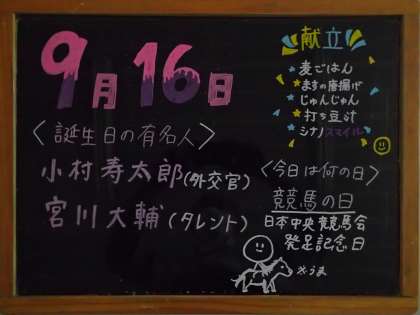 9月16日
献立
★麦ごはん
★まちの唐揚げ
★じゅんじゅん
★打ち豆汁
★シナノスマイル
〈誕生日の有名人〉
小村寿太郎(外交官)
宮川大輔(タレント)
〈今日は何の日〉
競馬の日
日本中央競馬会
発足記念日
※うま